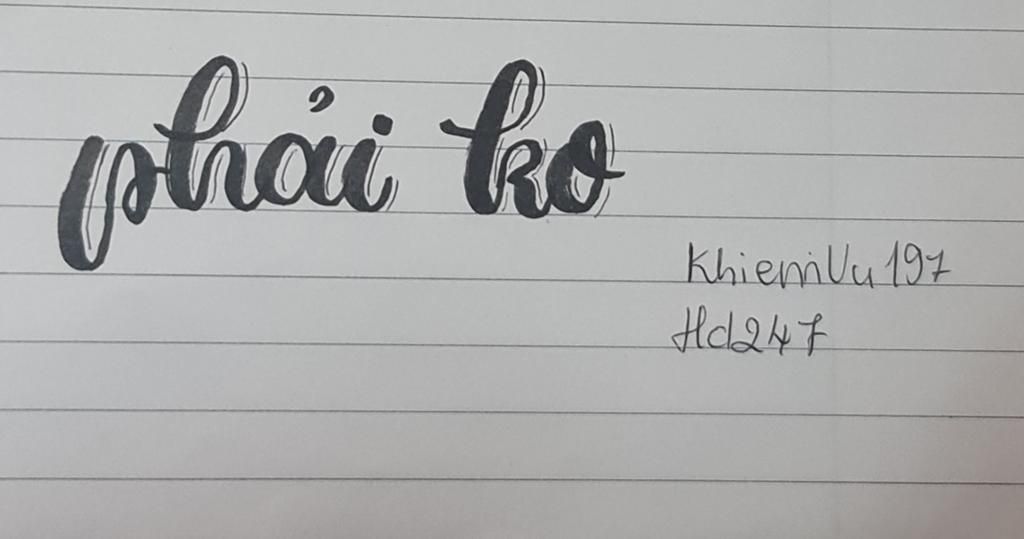 phải ko
KhiemVu197
Hd247